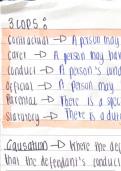 3 COPS :
Contractual → A person may
Carer → A person may hav
Conduct → A person's cond
Official → A person may
Parental → There is a spec
Statutory → There is a dut
Causation → Where the def
that the defendant's conduct